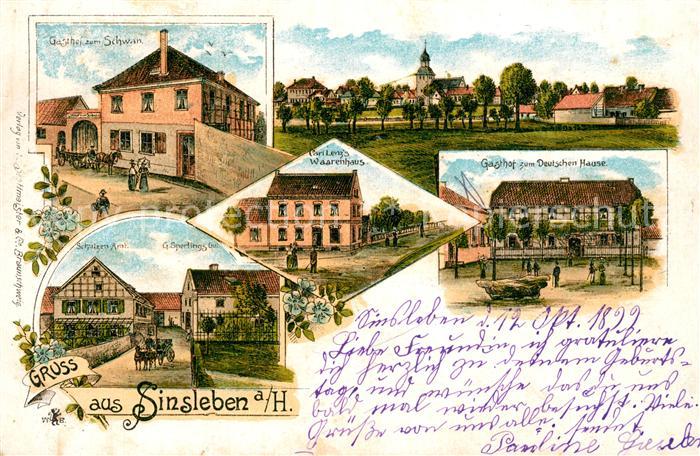 Gasthof zum Schwan.
Carl Lenz's
Waarenhaus.
Gasthof zum Deutschen Hause.
Schulzen Amt.
G. Sperlings Gut
GRUSS
aus Sinsleben a/H.
Verlag von & Co Braunschweig.
W & B.
Sinsleben d. 12 Okt. 1899
Liebe Freundin, ich gratuliere
dich herzlich zu deinem Geburts-
tage und wünsche das du uns
bald mal wieder besuchst. Viele
Grüße von uns alle. sendet
Pauline